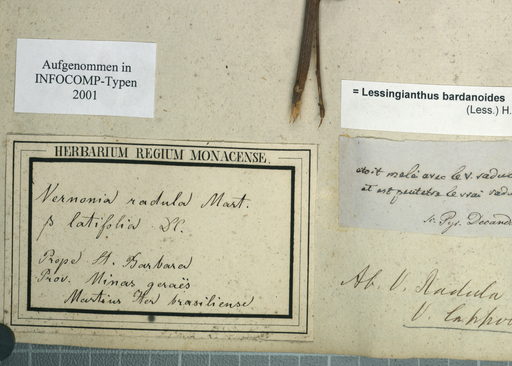 Aufgenommen in
INFOCOMP-Typen
2001
= Lessingianthus bardanoides
(Less.) H.
HERBARIUM REGIUM MONACENSE.
Vernonia radula Mart.
β latifolia DC.
Prope St. Barbara
Prov. Minas geraës
Martius Iter brasiliense
étoit melé avec le V. radu
et est peutetre le vrai rad
Ab. V. Radula
V. Lappo